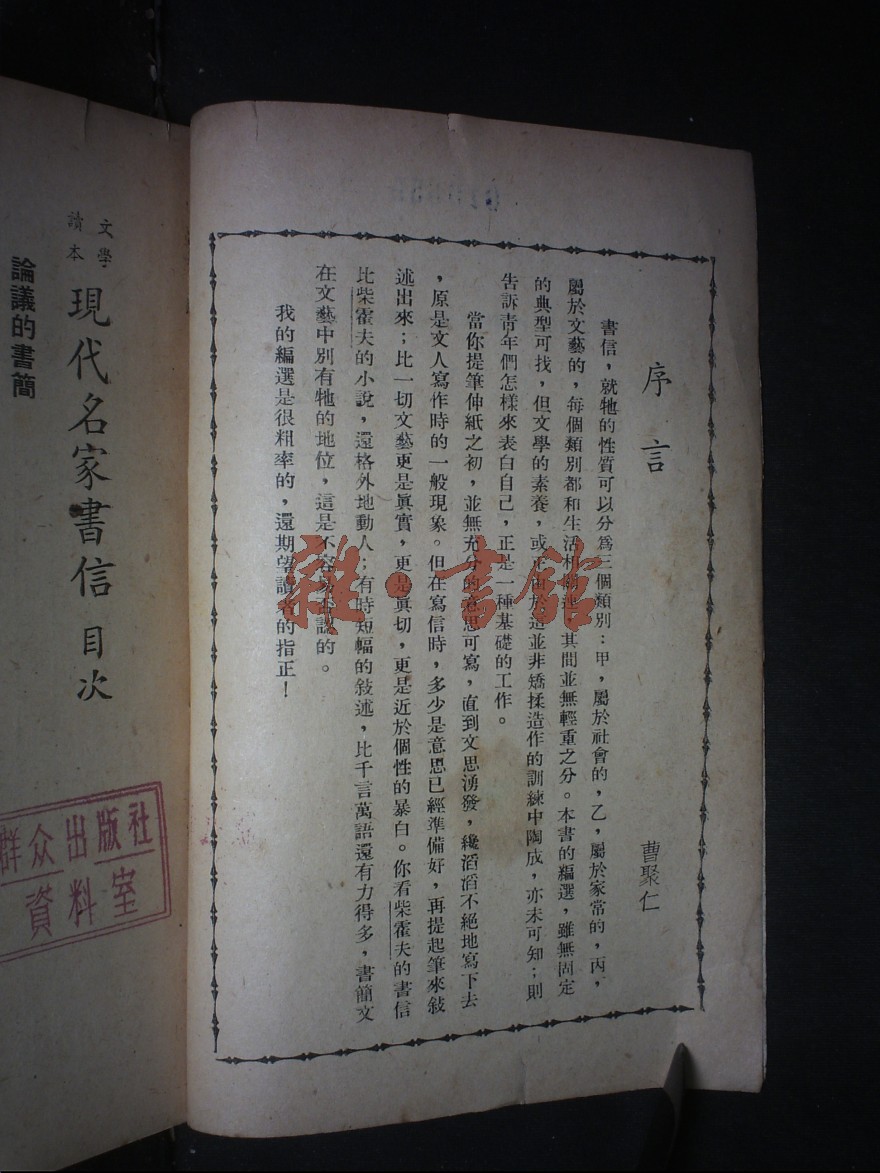 序言
曹聚仁
書信，就牠的性質可以分爲三個類別：甲，屬於社會的，乙，屬於家常的，丙，
屬於文藝的，每個類別都和生活相關連，其間並無輕重之分。本書的編選，雖無固定
的典型可找，但文學的素養，或正由於這並非矯揉造作的訓練中陶成，亦未可知；則
告訴青年們怎樣來表白自己，正是一種基礎的工作。
當你提筆伸紙之初，並無充分的意思可寫，直到文思湧發，纔滔滔不絕地寫下去
，原是文人寫作時的一般現象。但在寫信時，多少是意思已經準備好，再提起筆來敍
述出來；比一切文藝更是眞實，更是眞切，更是近於個性的暴白。你看柴霍夫的書信
比柴霍夫的小說，還格外地動人；有時短幅的敍述，比千言萬語還有力得多，書簡文
在文藝中別有牠的地位，這是不容易說的。
我的編選是很粗率的，還期望讀者的指正！
文學
讀本
現代名家書信目次
論議的書簡
群众出版社
資料室
雜·書館